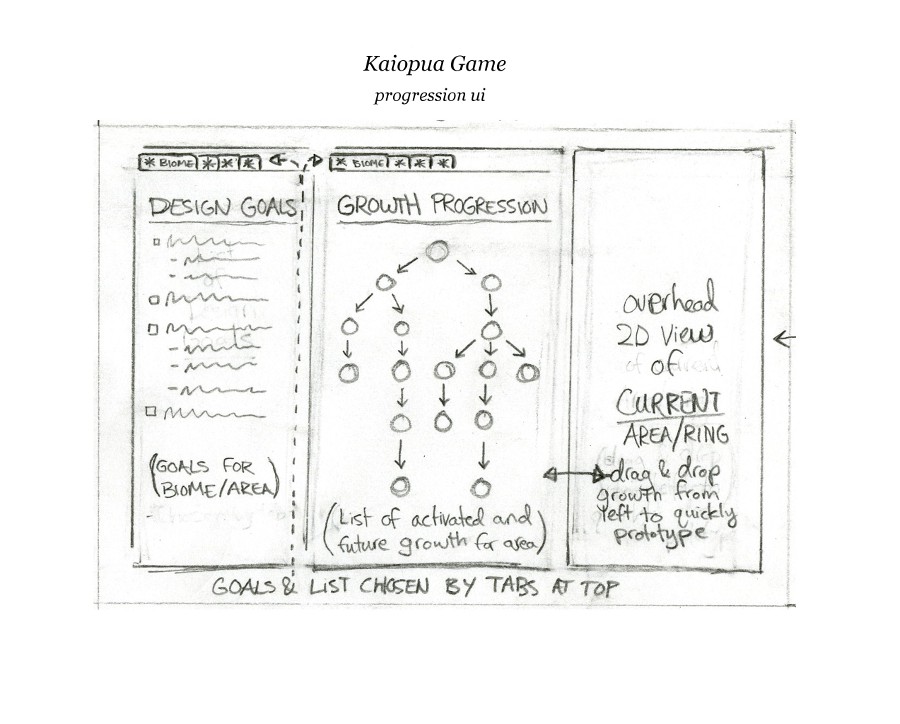 Kaiopua Game
progression ui
* BIOME * * *
* BIOME * * *
DESIGN GOALS
GROWTH PROGRESSION
(GOALS FOR
BIOME/AREA)
(List of activated and
future growth for area)
overhead
2D View
of
CURRENT
AREA/RING
drag & drop
growth from
left to quickly
prototype
GOALS & LIST CHOSEN BY TABS AT TOP